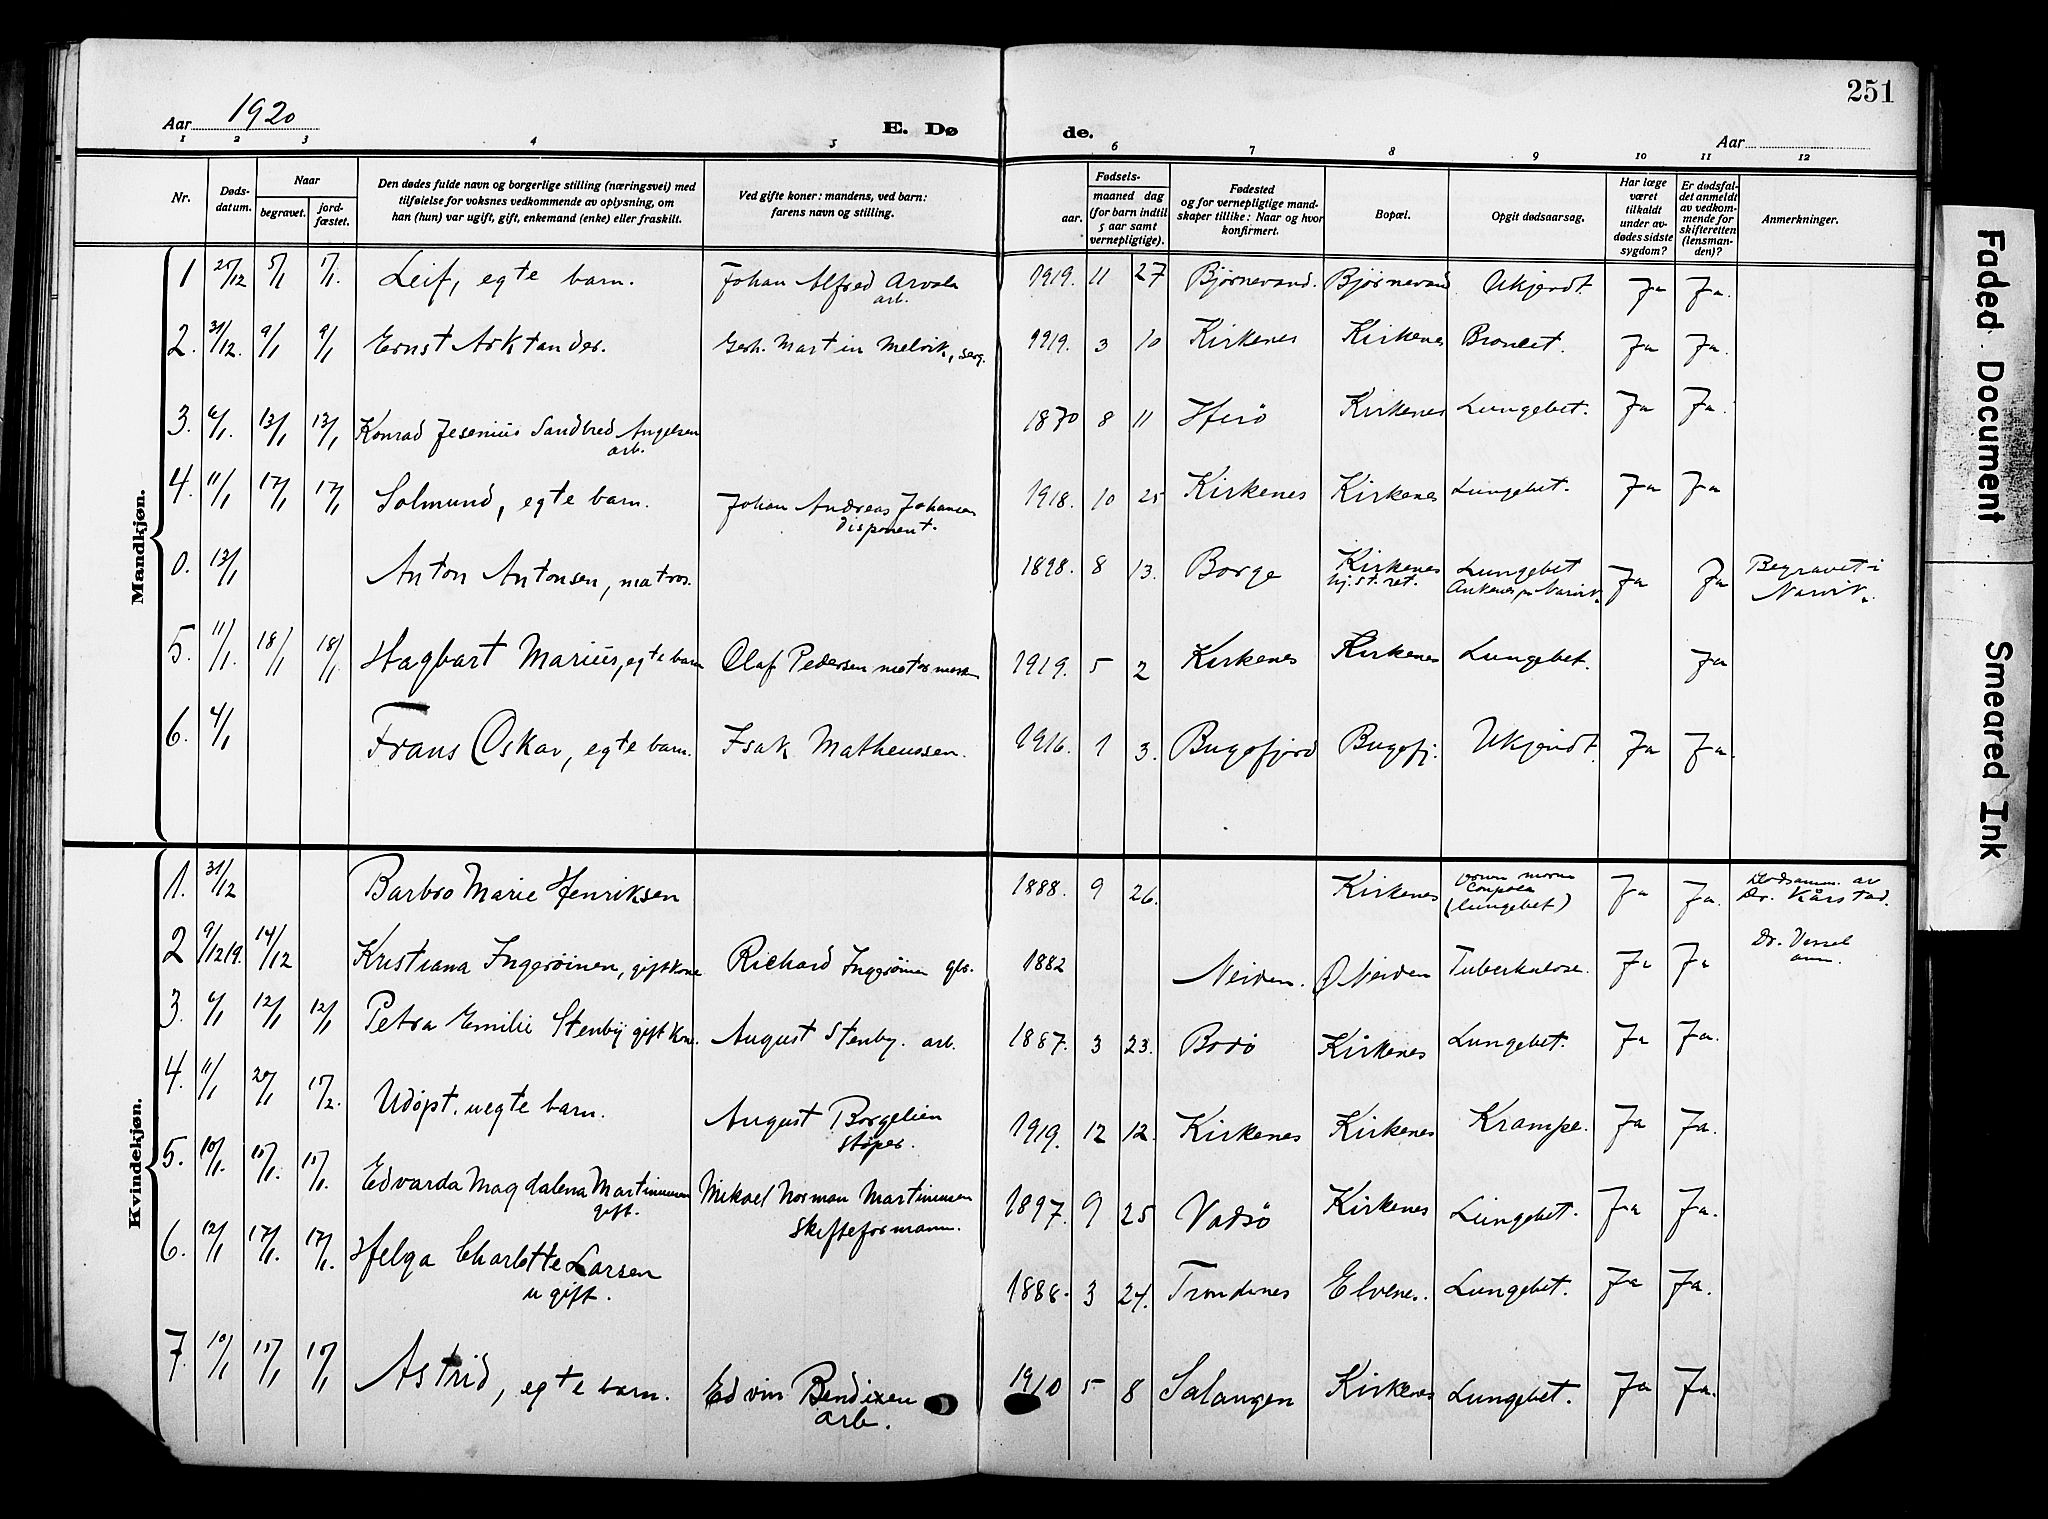 251
Aar 1920
E. Dø
de.
Aar
1 2 3 4 5 6 7 8 9 10 11 12
Nr.
Døds-
datum.
Naar
begravet.
jord-
fæstet.
Den dødes fulde navn og borgerlige stilling (næringsvei) med
tilføielse for voksnes vedkommende av oplysning, om
han (hun) var ugift, gift, enkemand (enke) eller fraskilt.
Ved gifte koner: mandens, ved barn:
farens navn og stilling.
Fødsels-
aar.
maaned dag
(for barn indtil
5 aar samt
vernepligtige).
Fødested
og for vernepligtige mand-
skaper tillike: Naar og hvor
konfirmert.
Bopæl.
Opgit dødsaarsag.
Har læge
været
tilkaldt
under av-
dødes sidste
sygdom?
Er dødsfal-
det anmeldt
av vedkom-
mende for
skifteretten
(lensman-
den)?
Anmerkninger.
Mandkjøn.
1 25/12 5/1 1/1. Leif, egte barn. Johan Alfred Arvola 1919. 11 27 Bjørnevand. Bjørnevand Ukjendt. Ja Ja.
arb.
2. 31/12. 9/1 9/1 Ernst Arktander. Gerh. Martin Melvik, serg. 1919. 3 10 Kirkenes Kirkenes Broncit. Ja Ja.
3. 6/1. 13/1 13/1 Konrad Jesenius Sandbred Angelsen 1870 8 11 Herö Kirkenes Lungebet. Ja Ja.
arb.
4. 11/1 17/1 17/1 Solmund, egte barn. Johan Andreas Johansen 1918. 10 25 Kirkenes Kirkenes Lungebet. Ja Ja
disponent.
0. 13/1 Anton Antonsen, matros. 1898. 8 13. Borge Kirkenes Lungebet Ja Ja Begravet i
hj.st.ret. Ankenes pr Narvik. Narvik.
5. 11/1. 18/1 18/1. Hagbart Marius, egte barn Olaf Pedersen motormask 1919. 5 2 Kirkenes Kirkenes Lungebet. Ja
6. 4/1 Frans Oskar, egte barn. Isak Matheussen. 1916. 1 3. Bugøfjord Bugøfj. Ukjendt. Ja Ja.
Kvindekjøn.
1. 31/12 Barbro Marie Henriksen 1888. 9 26. Kirkenes (lungebet) Ja Ja. Dr. Kårstad.
2 9/12 19. 14/12 Kristiana Ingeröinen, gift kone Richard Ingeröinen gbr. 1882 Neiden. Ø Neiden Tuberkulose. Ja Ja Dr. Vessel
anm.
3. 6/1 12/1 12/1 Petra Emilie Stenby gift kone. August Stenby. arb. 1887. 3 23. Bodö Kirkenes Lungebet. Ja Ja.
4. 11/1 20/1 15/2. Udøpt. uegte barn. August Borgelien 1919. 12 12. Kirkenes Kirkenes Krampe. Ja Ja.
støper.
5. 10/1. 15/1. 15/1. Edvarda Magdalena Martinussen Mikael Norman Martinussen 1897. 9 25 Vadsö Kirkenes Lungebet. Ja Ja.
gift. skifteformann.
6. 12/1 17/1. 17/1. Helga Charlotte Larsen 1888. 3 24. Trondenes Elvenes. Lungebet. Ja Ja.
ugift.
7. 10/1 15/1 15/1 Astrid, egte barn. Edvin Bendixen 1910 5 8 Salangen Kirkenes Lungebet. Ja Ja.
arb.
Faded Document
Smeared Ink